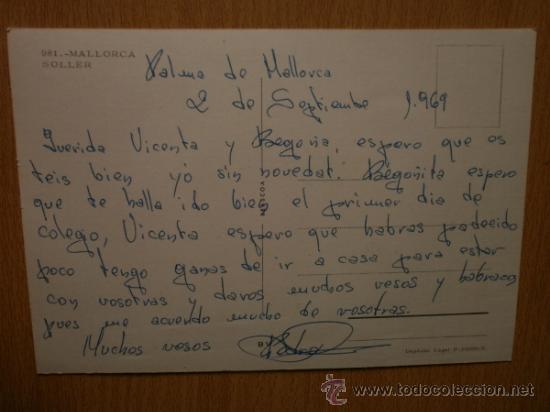 981.-MALLORCA
SOLLER
Palma de Mallorca
2 de Septiembre 1.969
Querida Vicenta y Begoña, espero que es
teis bien yó sin novedat. Begoñita espero
que te halla ido bien el primer dia de
colegio, Vicenta espero que habras padecido
poco tengo ganas de ir a casa para estar
con vosotras y daros muchos vesos y habraços
pues me acuerdo mucho de vosotras.
Muchos vesos
todocoleccion
todocoleccion.net